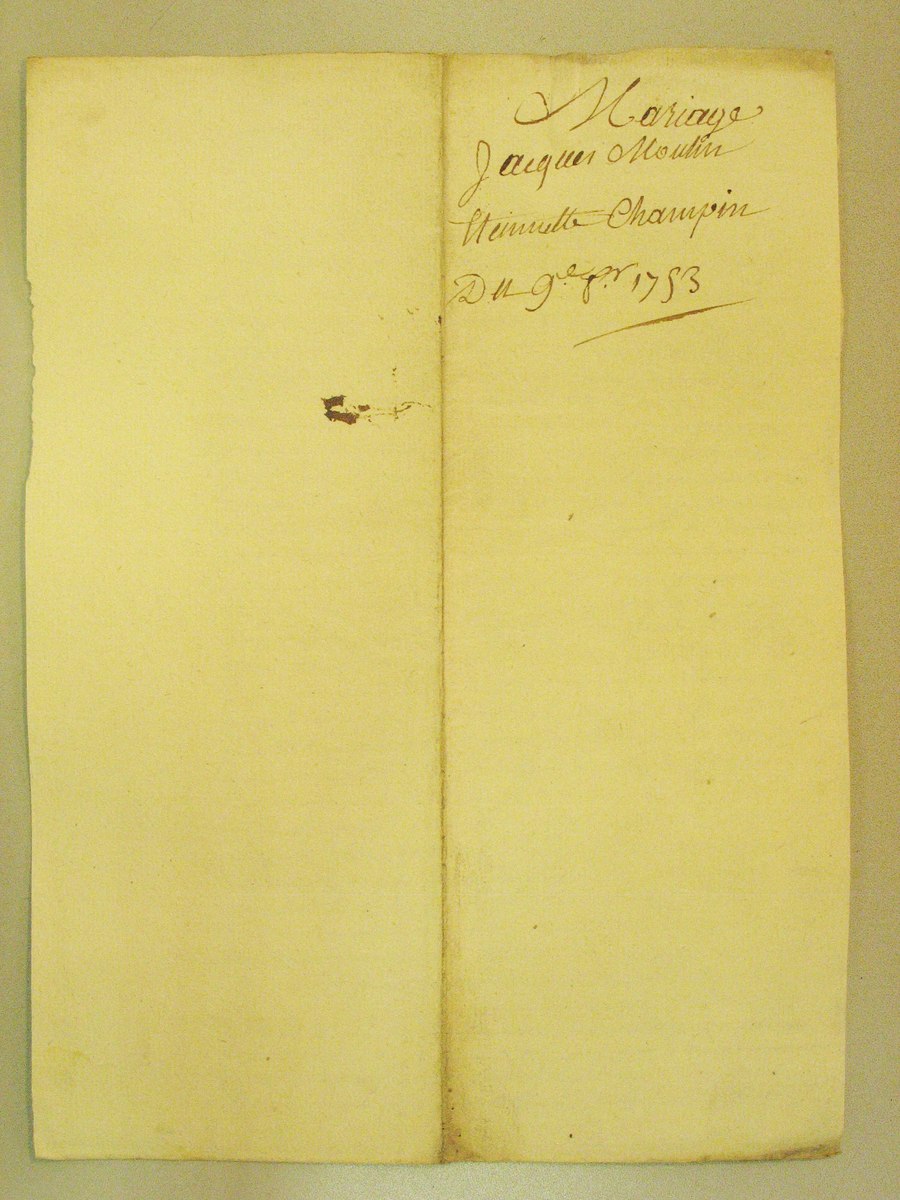 Mariage
Jacques Moulin
Etiennette Champin
Du 9e 1753